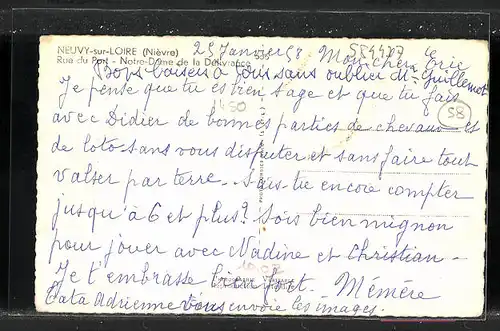 NEUVY-sur-LOIRE (Nièvre) 25 Janvier 58. Mon cher Eric
554427
Rue du Port - Notre-Dame de la Délivrance
Bons baisers à tous sans oublier Mr Guillemot
Je pense que tu es bien sage et que tu fais
450
58
avec Didier de bonnes parties de chevaux et
de loto sans vous disputer et sans faire tout
valser par terre. Sais-tu encore compter
jusqu'à 6 et plus? Sois bien mignon
pour jouer avec Nadine et Christian -
Je t'embrasse bien fort - Mémère
Tata Adrienne vous envoie les images.